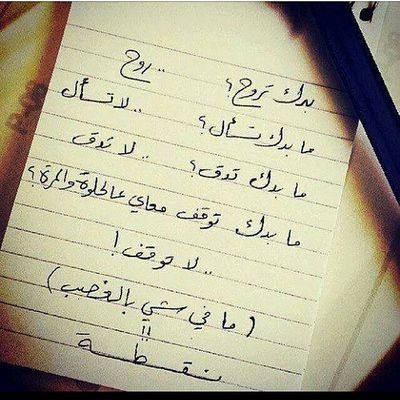 بدك تروح؟ .. روح
ما بدك تسأل؟ .. لا تسأل
ما بدك تدق؟ .. لا تدق
ما بدك توقف معاي عالحلوة والمرة؟
.. لا توقف!
( ما في شي بالغصب )
!!
نقطـــة